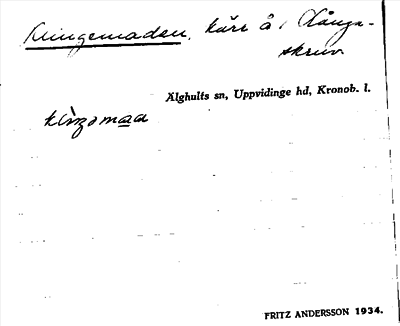 Klingemaden, kärr å Långa-
skruv
Älghults sn, Uppvidinge hd, Kronob. l.
FRITZ ANDERSSON 1934.